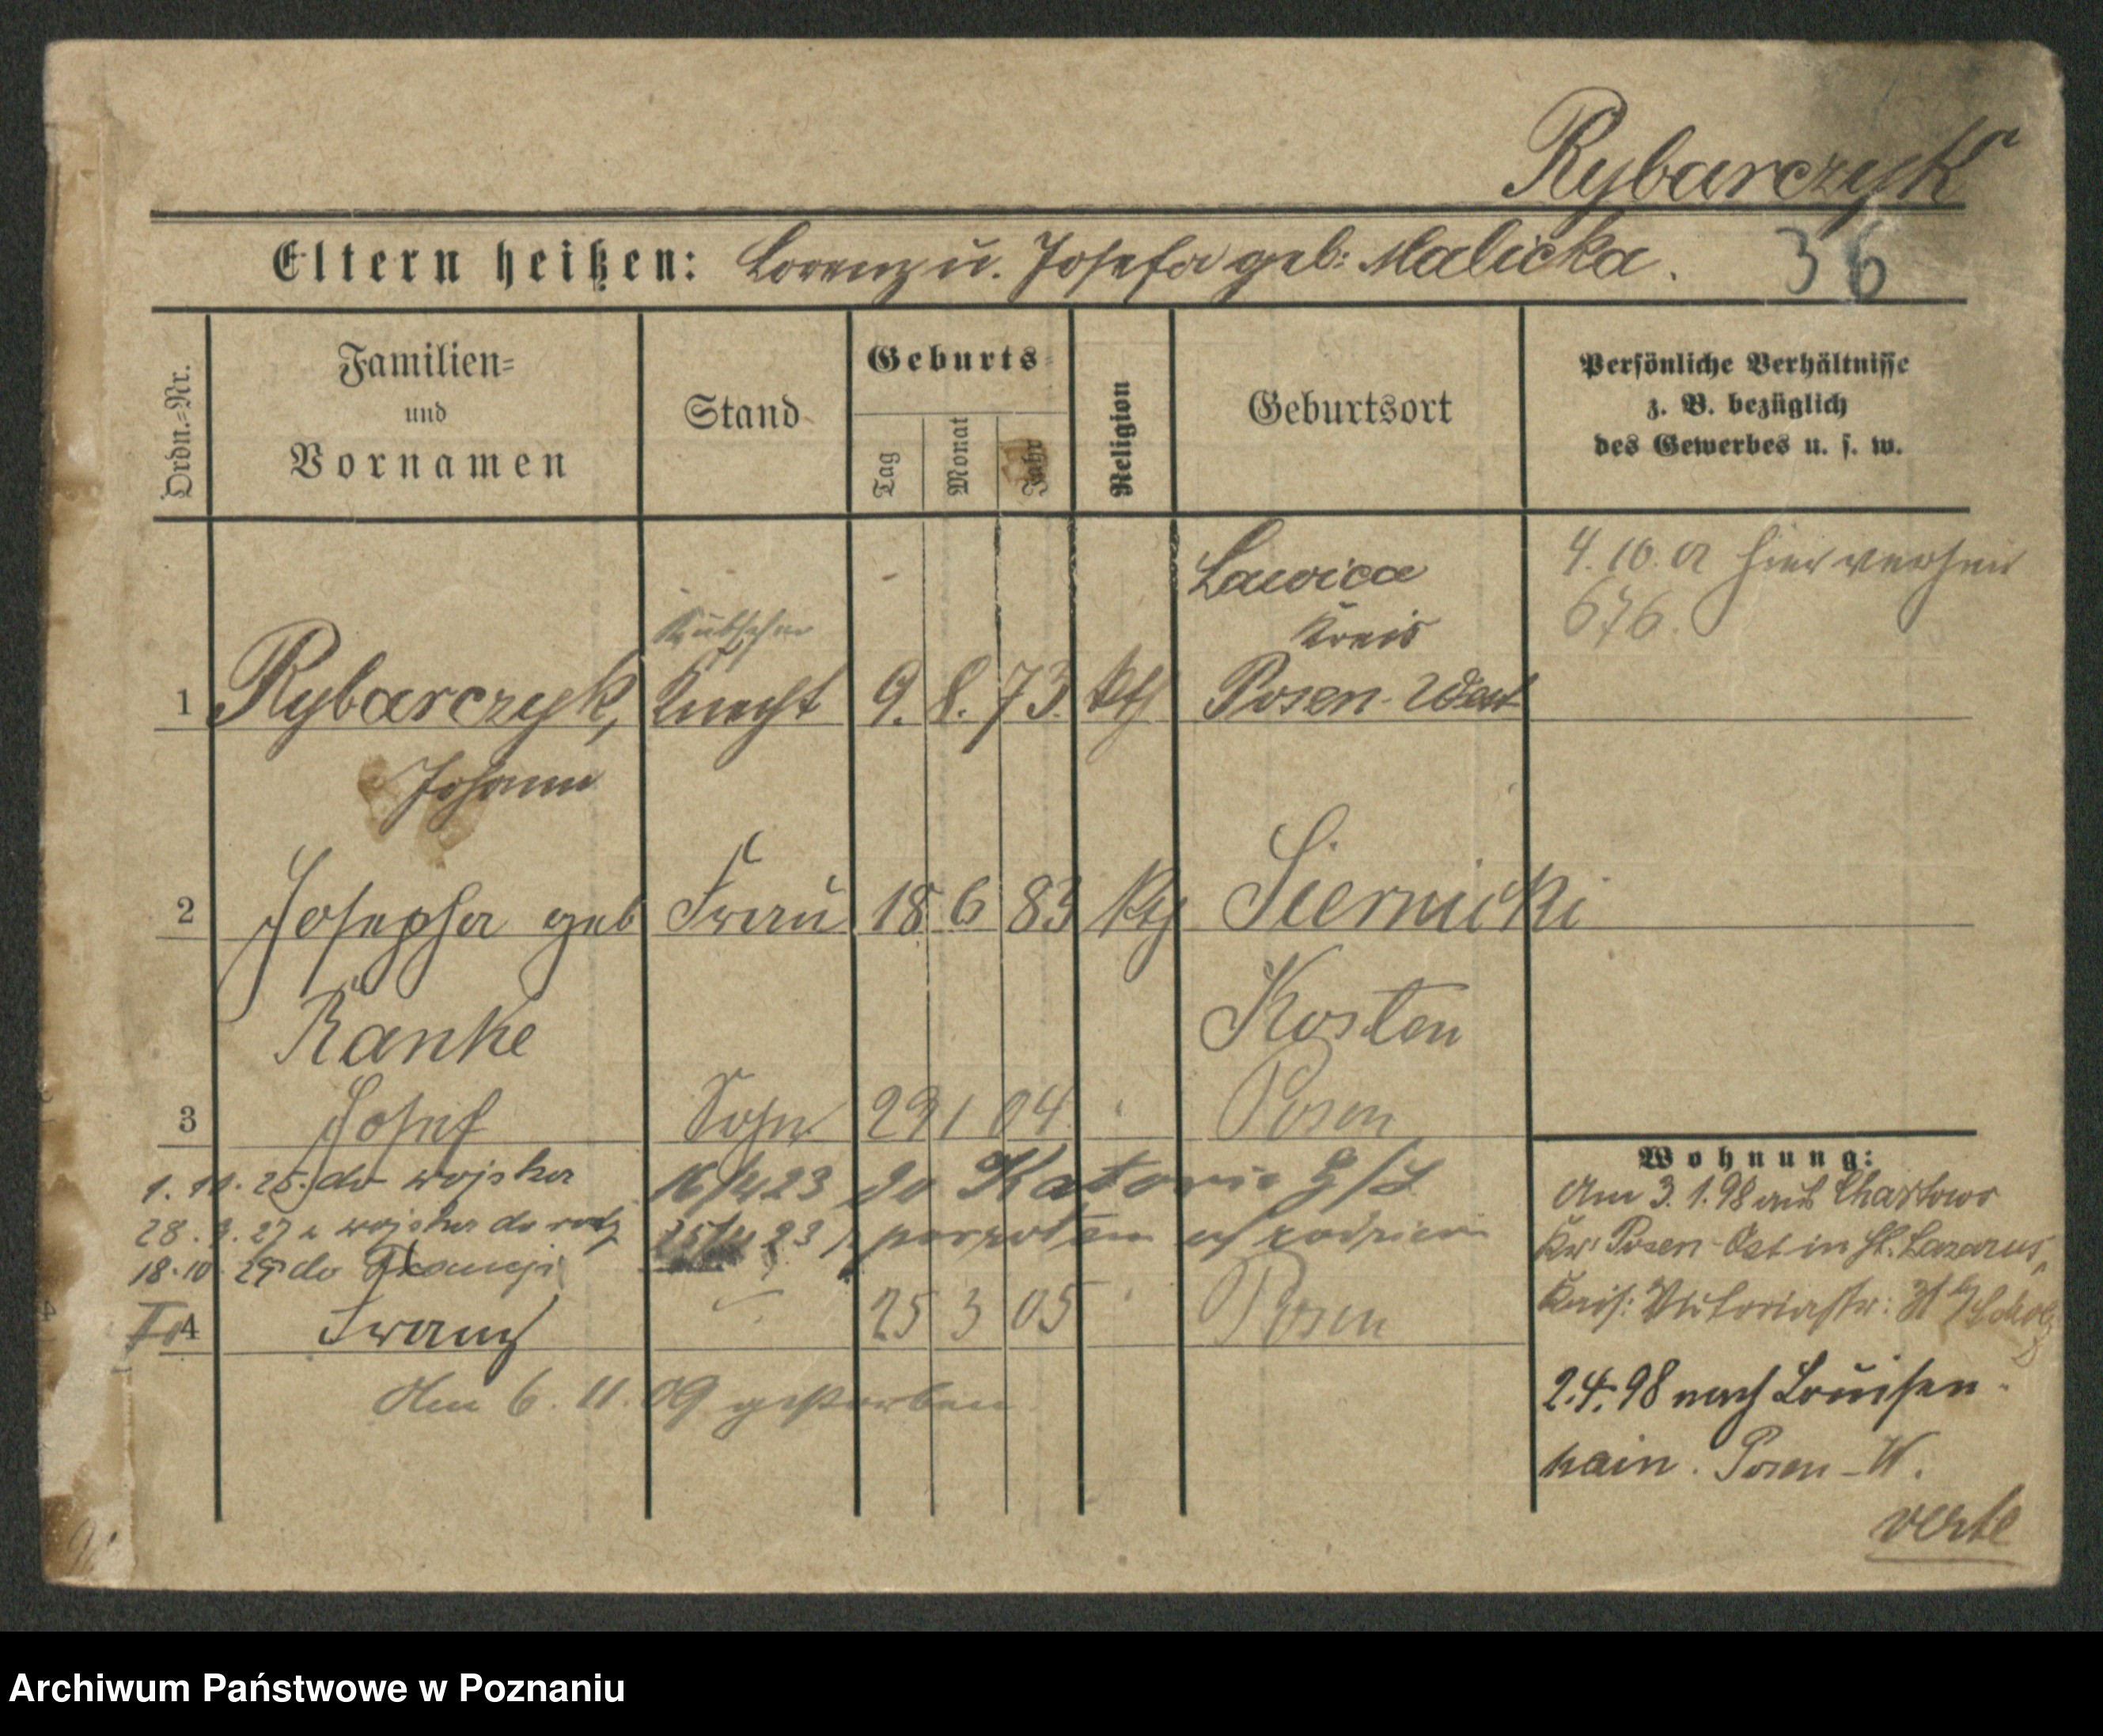 Rybarczyk
Eltern heißen: Lorenz u. Josefa geb: Malicka. 36
Ordn.=Nr.
Familien=
und
Vornamen
Stand
Geburts=
Tag
Monat
Jahr
Religion
Geburtsort
Persönliche Verhältnisse
z. B. bezüglich
des Gewerbes u. s. w.
Lawica
Kreis
4. 10. 01 hier verheir
676.
Kutscher
1 Rybarczyk, Knecht 9. 8. 73. kth Posen-West
Johann
2 Josepha geb Frau 18 6 83 kth Siernicki
Ranke Kosten
3 Josef Sohn 29 1 04 Posen
1. 11. 25. do wojska 16/4 23 do Katowic G/S
28. 9. 27 z wojska do rodz 25/4 23 z powrotem
18. 10. 29 do Francji
4 Franz 25 3 05 Posen
Am 6. 11. 09 gestorben
Wohnung:
Am 3. 1. 98 aus Chartowo
Kr. Posen-Ost in St. Lazarus,
2.4.98 nach Louisen-
hain. Posen-W.
verte
Archiwum Państwowe w Poznaniu